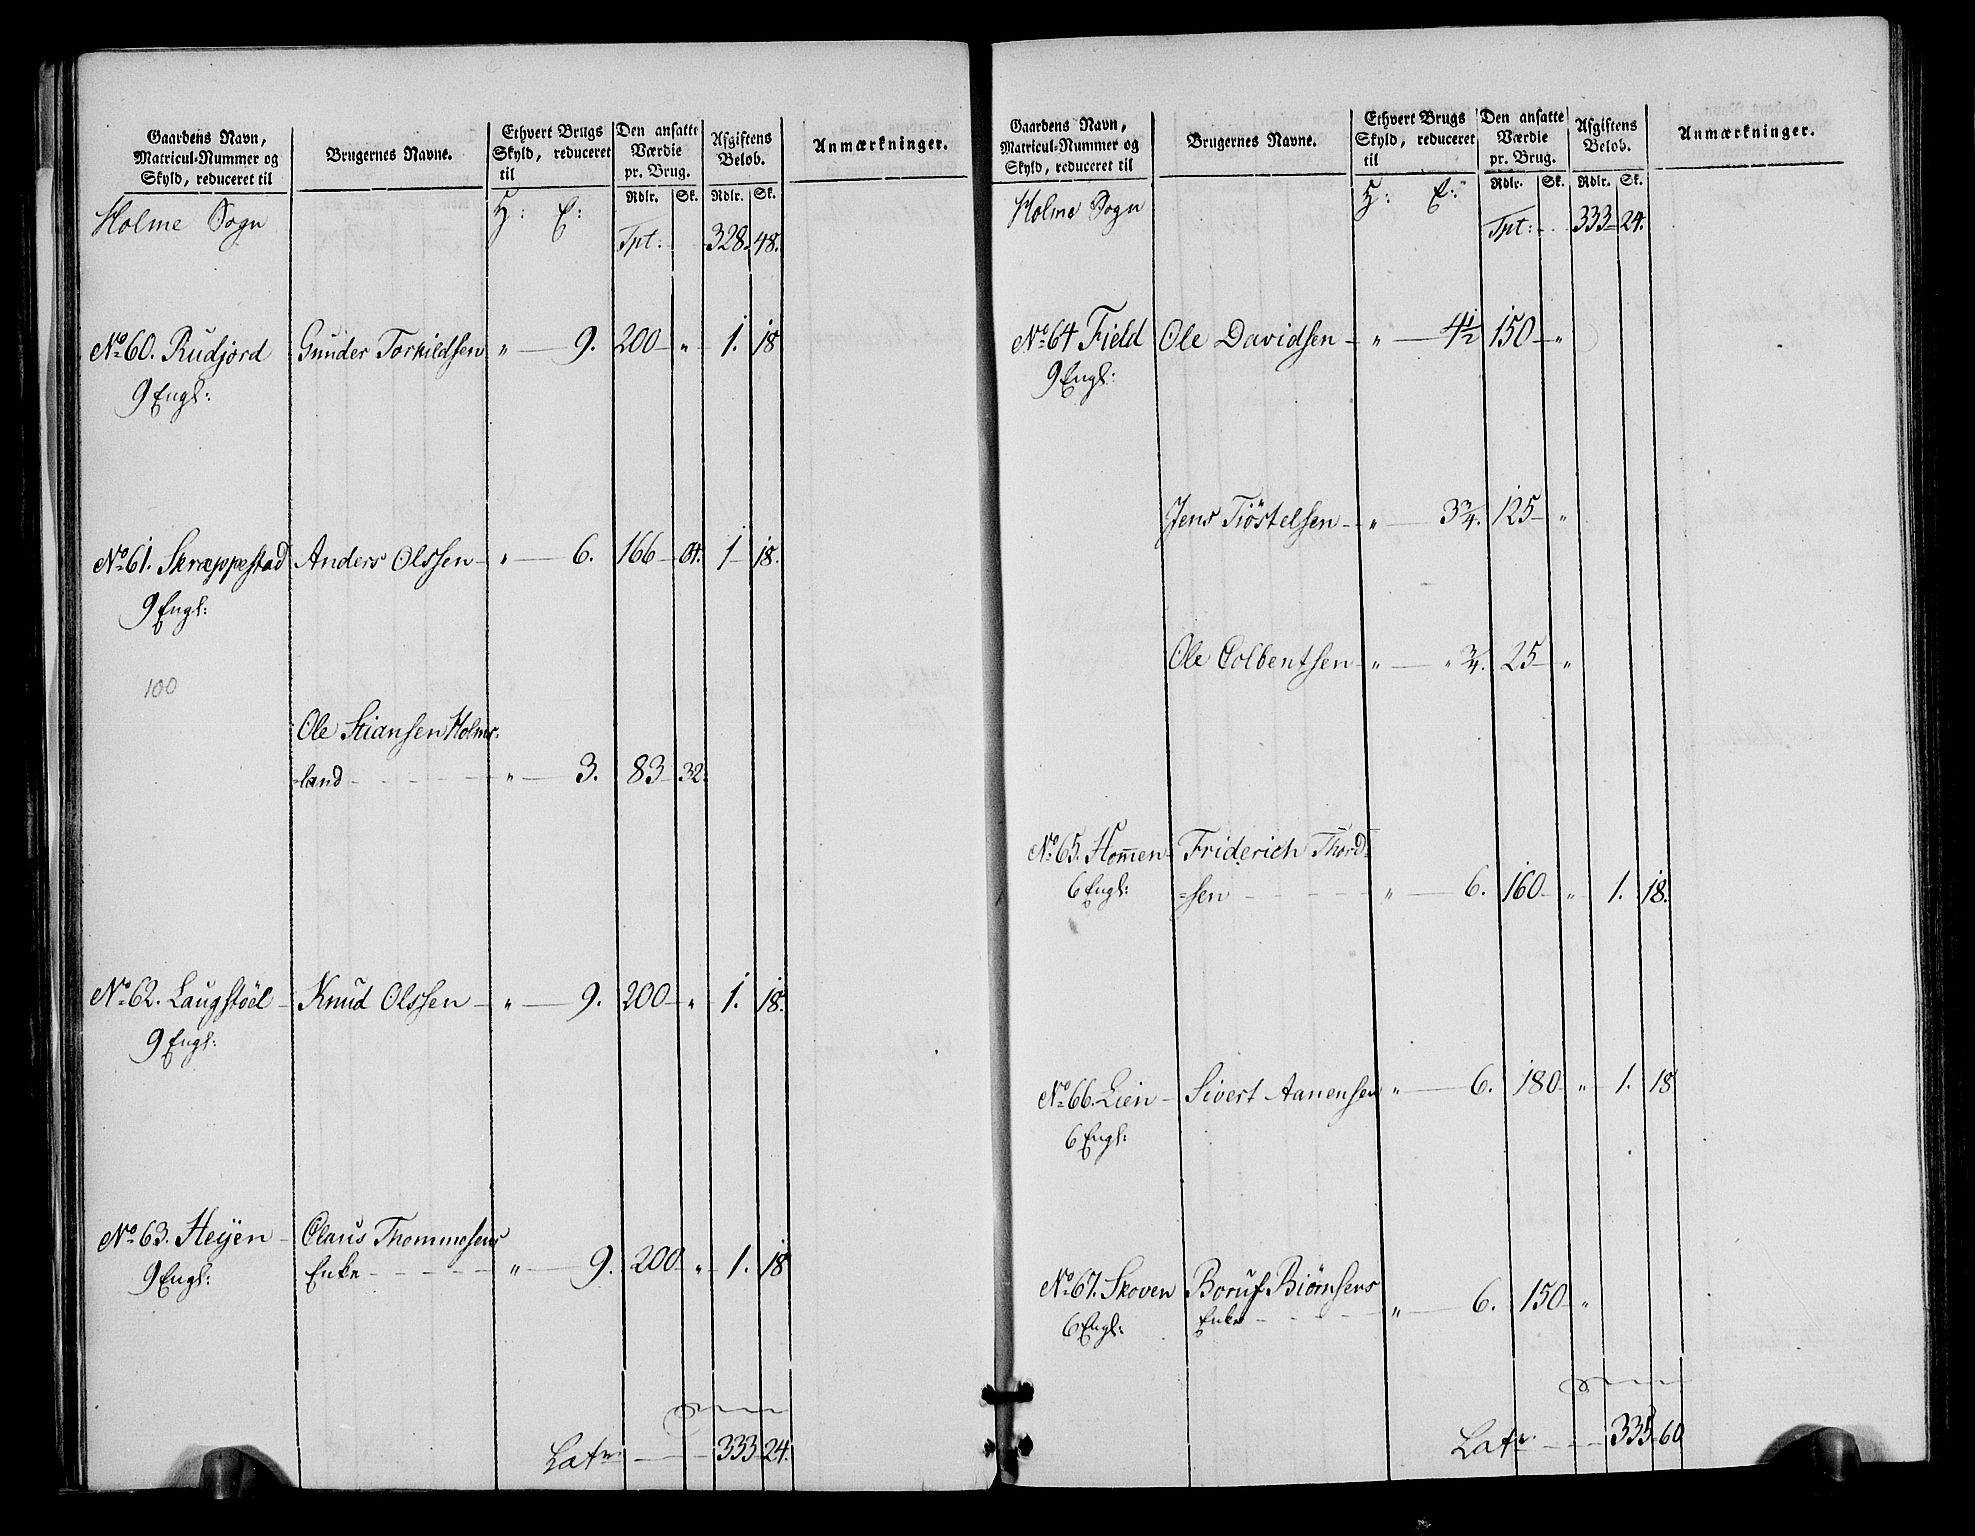 Gaardens Navn, Matricul-Nummer og Skyld, reduceret til | Brugernes Navne. | Ethvert Brugs Skyld, reduceret til | Den ansatte Værdie pr. Brug. | Afgiftens Belob. | Anmærkninger.
Rdlr. Sk. Rdlr. Sk.
Holme Sogn H: E: Tpt: 328 48.
No 60. Rudjord Gunder Torkildsen " 9. 200 " 1. 18
9 Engl:
No 61. Skræppestad Anders Olssen " 6. 166 64. 1 18.
9 Engl:
100
Ole Stiansen Holms-
land " 3. 83 32.
No 62. Laugstöel Knud Olssen " 9. 200 " 1. 18.
9 Engl:
No 63. Heÿen Claus Thommesens
9 Engl: Enke " 9. 200 " 1. 18
Latr: 333 24.
Gaardens Navn, Matricul-Nummer og Skyld, reduceret til | Brugernes Navne. | Ethvert Brugs Skyld, reduceret til | Den ansatte Værdie pr. Brug. | Afgiftens Belob. | Anmærkninger.
Rdlr. Sk. Rdlr. Sk.
Holme Sogn H: E: Tpt: 333 24.
No 64 Field Ole Davidsen " 4½ 150 "
9 Engl:
Jens Tiöstelsen " 3¾. 125 "
Ole Colbentsen " " ¾. 25 "
No 65. Hom̄en Friderich Thord-
6 Engl: =sen " 6. 160 " 1. 18.
No 66. Lien Sivert Aanensen " 6. 180 " 1. 18
6 Engl:
No 67. Skoven Boruf Biörnsens
6 Engl: Enke " 6. 150 "
Latr: 335 60